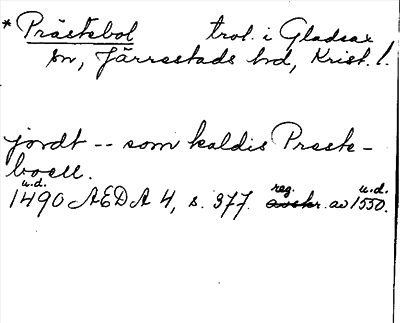 * Prästebol trol. i Gladsax
sn, Järrestads hd, Krist. l.
jordt -- som kaldis Præste-
boell.
u.d. reg. u.d.
1490 AEDA 4, s. 377. avskr. av 1550.